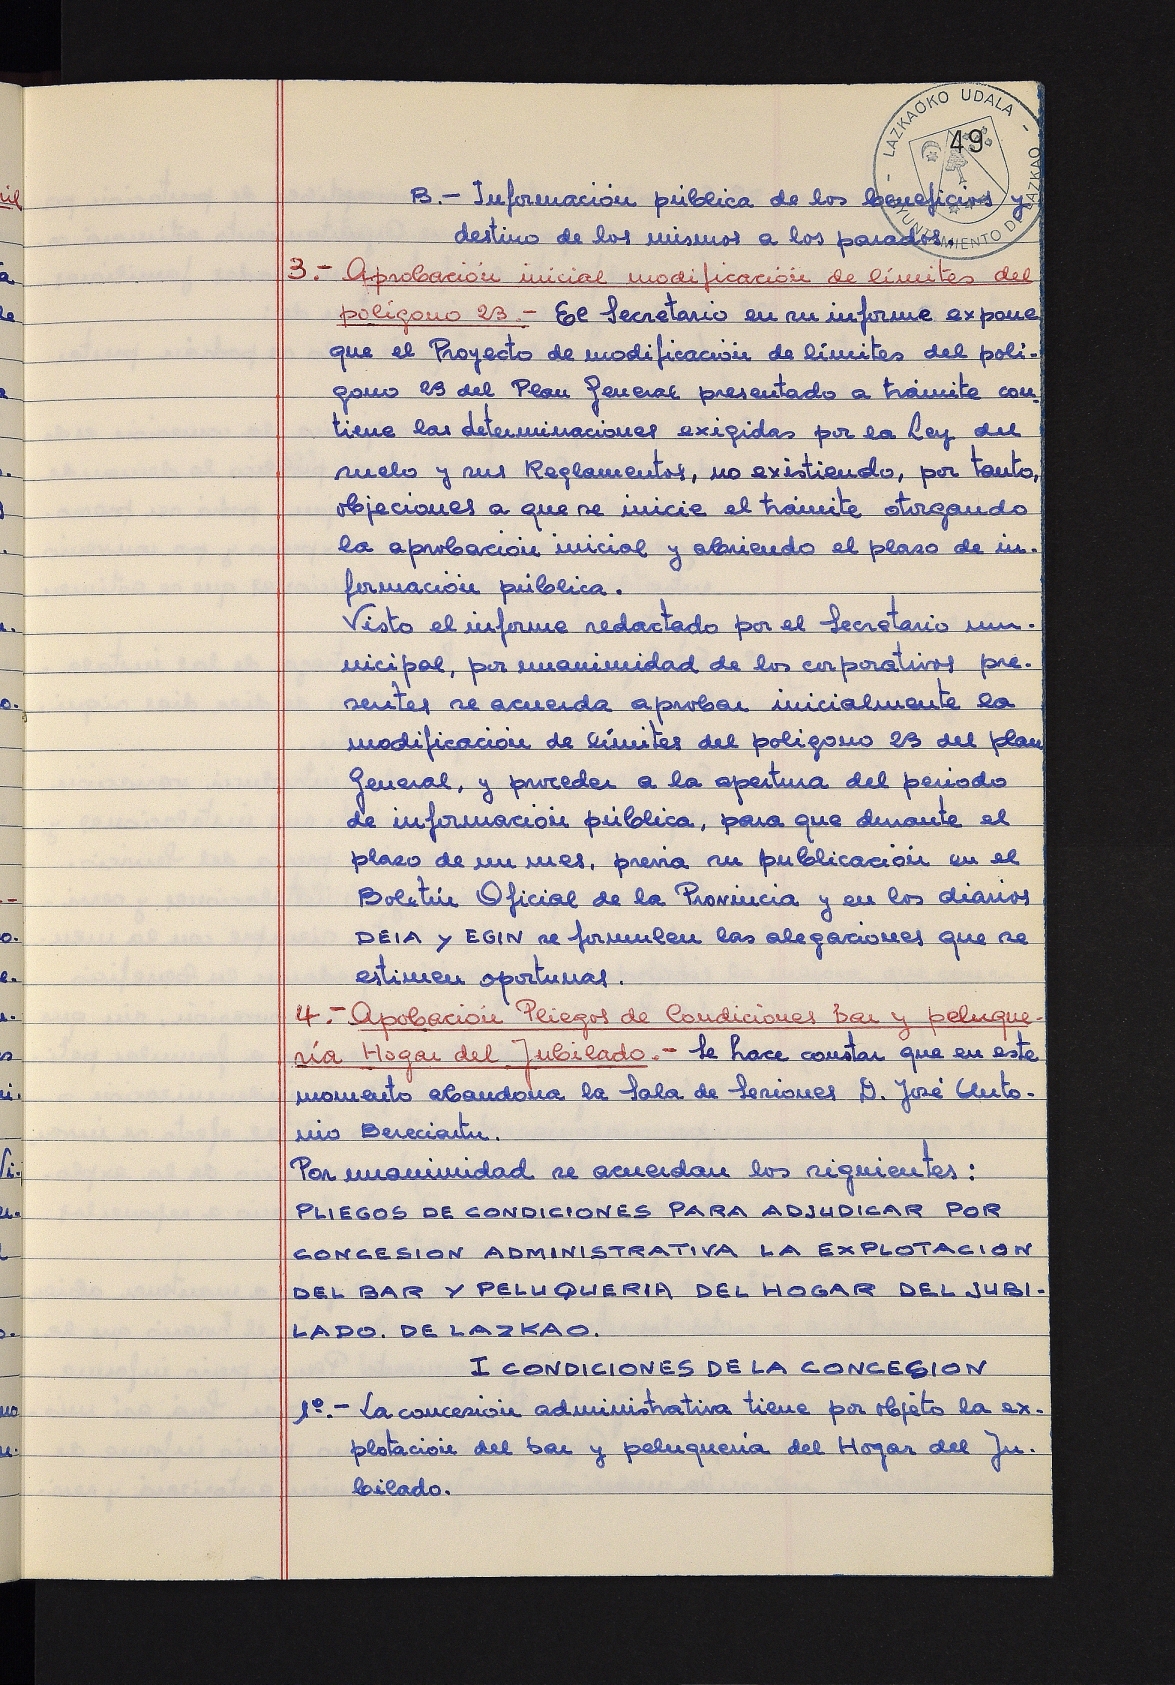 LAZKAOKO UDALA - AYUNTAMIENTO DE LAZKAO -
49
B.- Información pública de los beneficios y
destino de los mismos a los parados.
3.- Aprobación inicial modificación de límites del
polígono 23.- El Secretario en su informe expone
que el Proyecto de modificación de límites del polí-
gono 23 del Plan General presentado a trámite con-
tiene las determinaciones exigidas por la Ley del
suelo y sus Reglamentos, no existiendo, por tanto,
objeciones a que se inicie el trámite otorgando
la aprobación inicial y abriendo el plazo de in-
formación pública.
Visto el informe redactado por el Secretario mu-
nicipal, por unanimidad de los corporativos pre-
sentes se acuerda aprobar inicialmente la
modificación de límites del polígono 23 del plan
General, y proceder a la apertura del periodo
de información pública, para que durante el
plazo de un mes, previa su publicación en el
Boletín Oficial de la Provincia y en los diarios
DEIA y EGIN se formulen las alegaciones que se
estimen oportunas.
4.- Apobación Pliegos de Condiciones Bar y peluque-
ría Hogar del Jubilado.- Se hace constar que en este
momento abandona la Sala de Sesiones D. José Anto-
nio Bereciartu.
Por unanimidad se acuerdan los siguientes:
PLIEGOS DE CONDICIONES PARA ADJUDICAR POR
CONCESION ADMINISTRATIVA LA EXPLOTACION
DEL BAR Y PELUQUERIA DEL HOGAR DEL JUBI-
LADO. DE LAZKAO.
I CONDICIONES DE LA CONCESION
1º.- La concesión administrativa tiene por objeto la ex-
plotación del bar y peluquería del Hogar del Ju-
bilado.